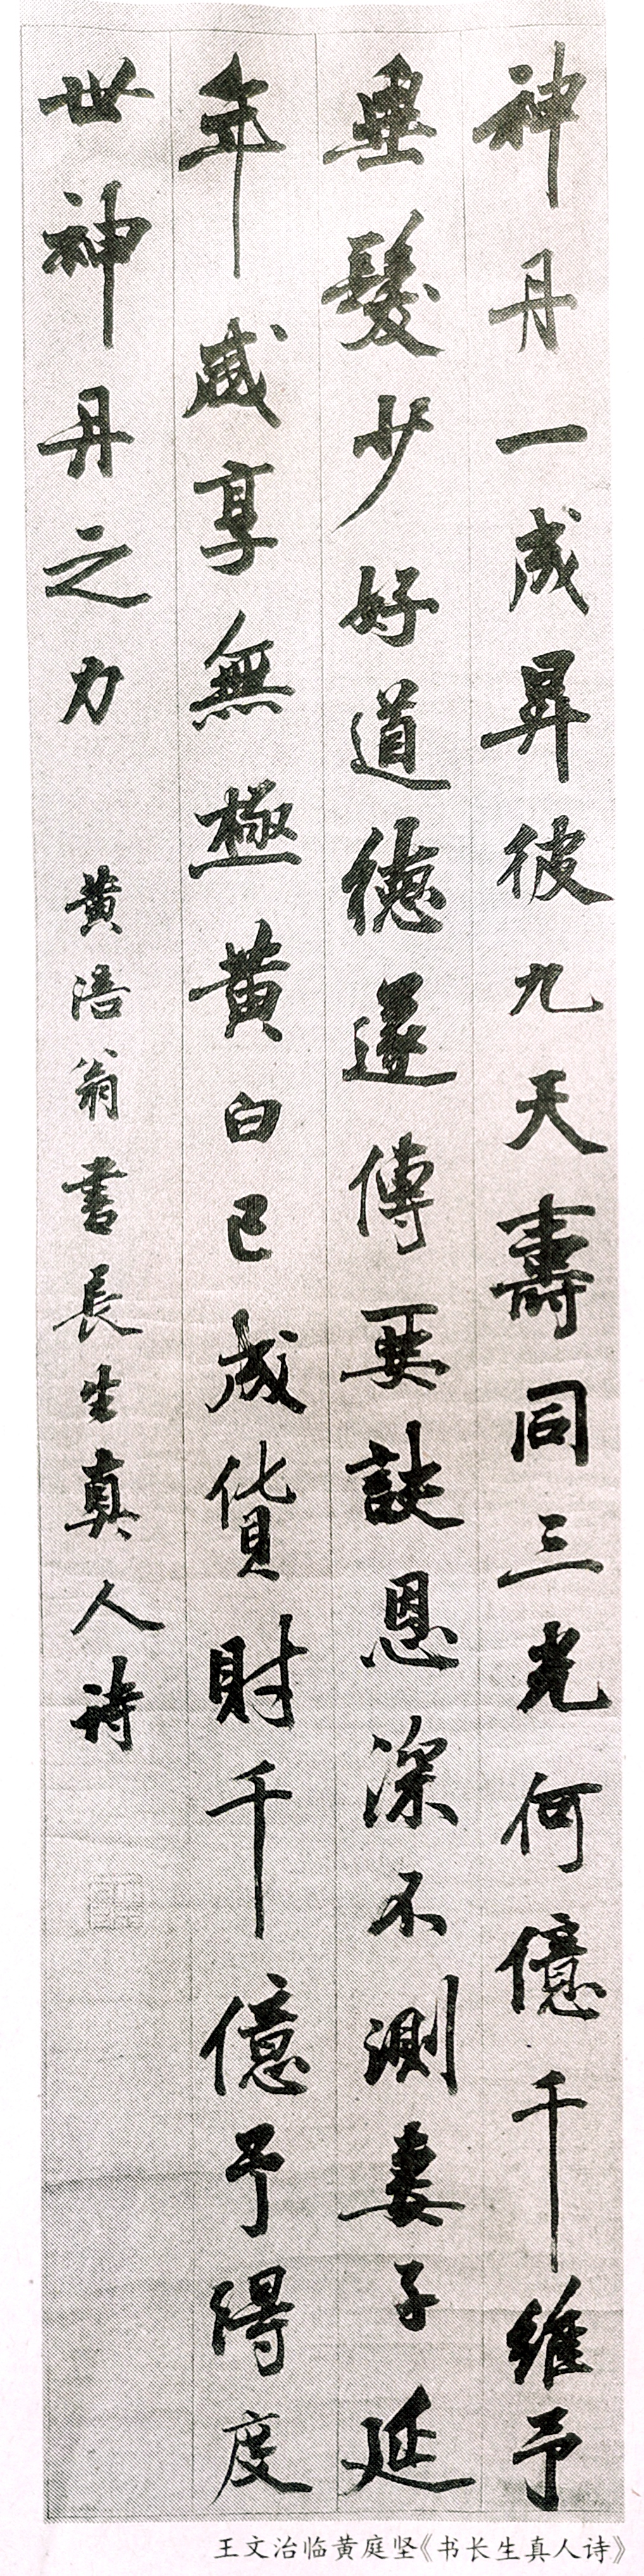 神丹一成昇彼九天壽同三光何億千維予
垂髮少好道德遂傳要訣恩深不測妻子延
年咸享無極黄白已成貨財千億予得度
世神丹之力 黄涪翁書長生真人詩
王文治临黄庭坚《书长生真人诗》